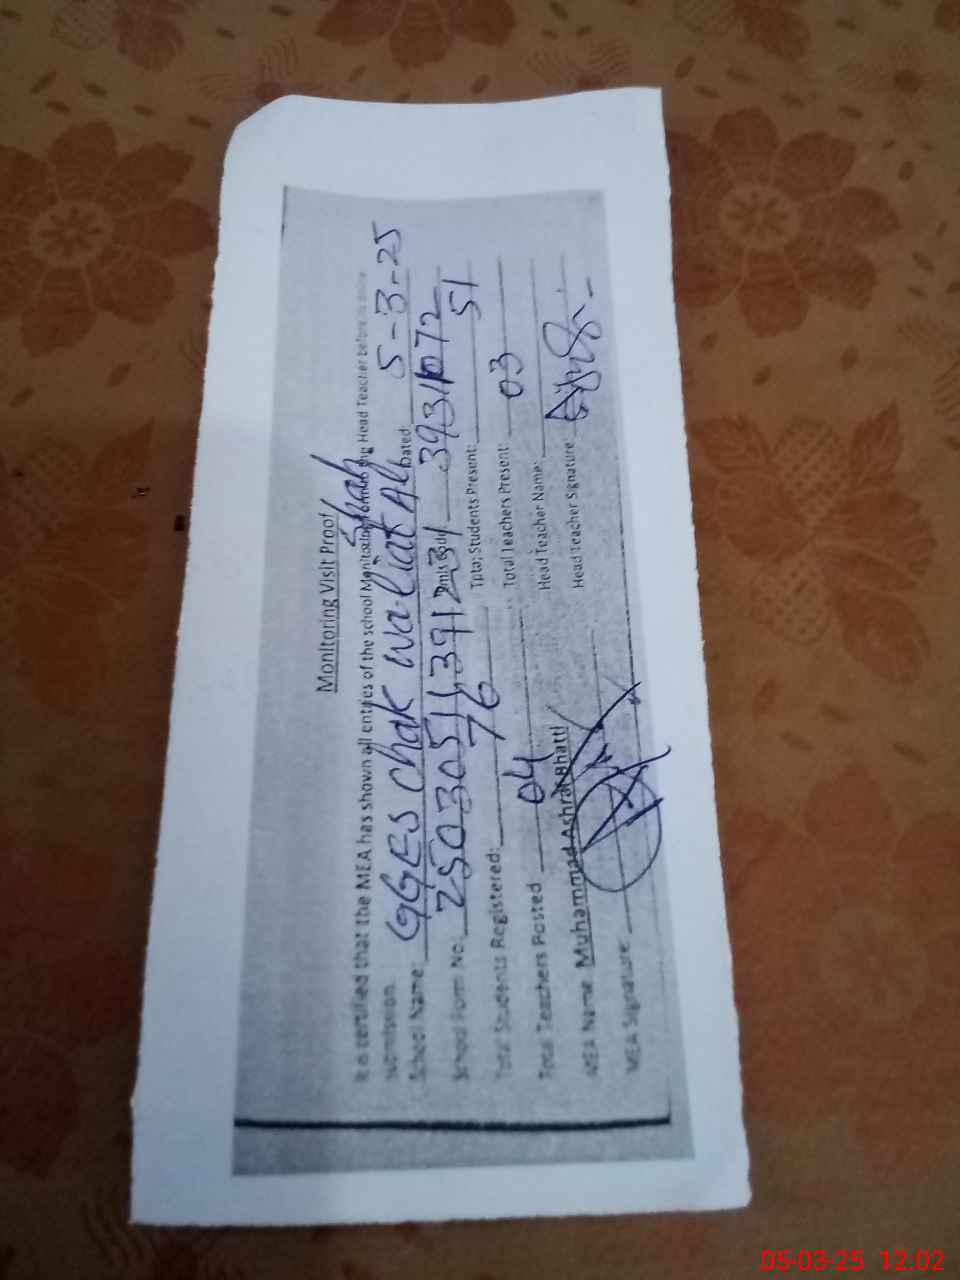 Monitoring Visit Proof
Shah
It is certified that the MEA has shown all entries of the school Monitoring Head Teacher before
submission.
School Name: GGES Chak Waliat Ali Dated: 5-3-25
School Form No. 250305 391231 39311072
Total Students Registered: 76 Total Students Present: 51
Total Teachers Posted 04 Total Teachers Present: 03
MEA Name Muhammad Ashraf Bhatti Head Teacher Name:
MEA Signature Head Teacher Signature
05-03-25 12:02